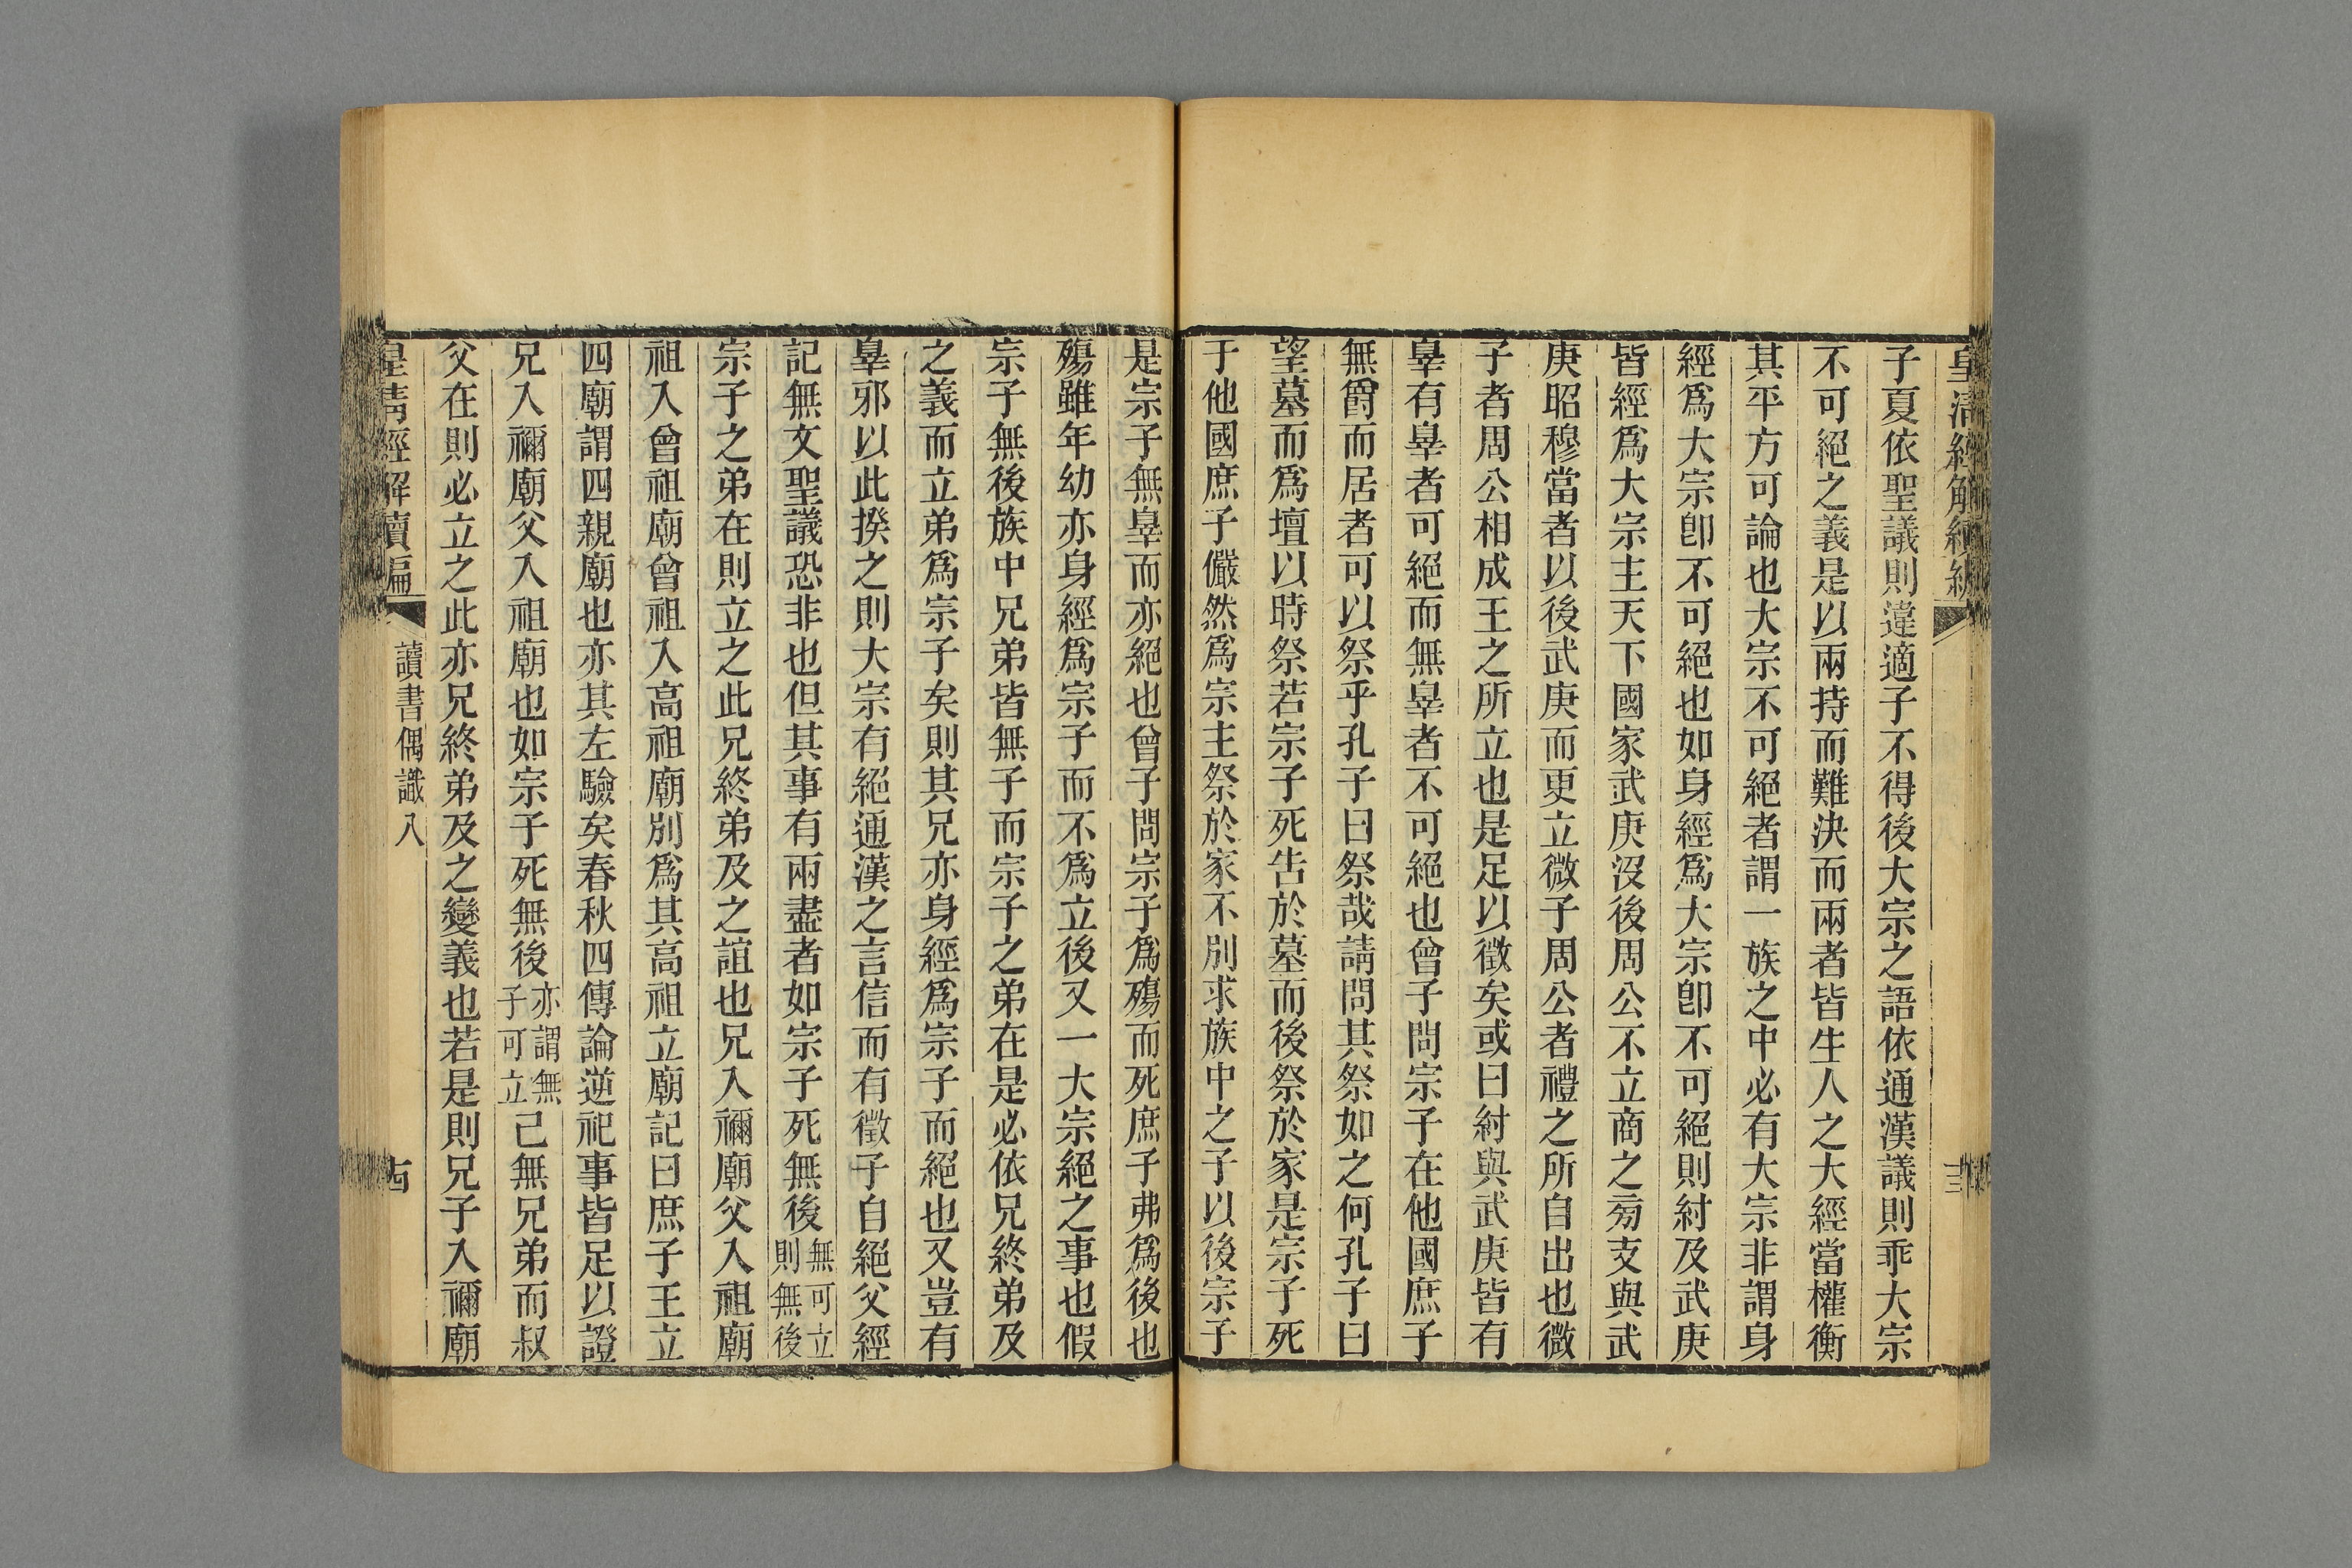 皇清經解續編
三
子夏依聖議則違適子不得後大宗之語依通漢議則乖大宗
不可絕之義是以兩持而難決而兩者皆生人之大經當權衡
其平方可論也大宗不可絕者謂一族之中必有大宗非謂身
經爲大宗卽不可絕也如身經爲大宗卽不可絕則紂及武庚
皆經爲大宗主天下國家武庚沒後周公不立商之旁支與武
庚昭穆當者以後武庚而更立微子周公者禮之所自出也微
子者周公相成王之所立也是足以徵矣或曰紂與武庚皆有
辠有辠者可絕而無辠者不可絕也曾子問宗子在他國庶子
無爵而居者可以祭乎孔子曰祭哉請問其祭如之何孔子曰
望墓而爲壇以時祭若宗子死告於墓而後祭於家是宗子死
于他國庶子儼然爲宗主祭於家不別求族中之子以後宗子
是宗子無辠而亦絕也曾子問宗子爲殤而死庶子弗爲後也
殤雖年幼亦身經爲宗子而不爲立後又一大宗絕之事也假
宗子無後族中兄弟皆無子而宗子之弟在是必依兄終弟及
之義而立弟爲宗子矣則其兄亦身經爲宗子而絕也又豈有
辠邪以此揆之則大宗有絕通漢之言信而有徵子自絕父經
記無文聖議恐非也但其事有兩盡者如宗子死無後無可立則無後
宗子之弟在則立之此兄終弟及之誼也兄入禰廟父入祖廟
祖入曾祖廟曾祖入高祖廟別爲其高祖立廟記曰庶子王立
四廟謂四親廟也亦其左驗矣春秋四傳論逆祀事皆足以證
兄入禰廟父入祖廟也如宗子死無後亦謂無子可立己無兄弟而叔
父在則必立之此亦兄終弟及之變義也若是則兄子入禰廟
皇淸經解續編
讀書偶識八